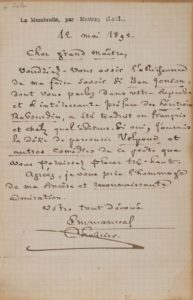 La Membrolle, par
12 mai 1892.
Cher grand Maître,
Voudriez-vous avoir l'obligeance
de me faire savoir si Ben Jonson,
dont vous parlez dans votre superbe
et si intéressante préface des
, a été traduit en français
et chez quel éditeur. Si oui, j'aurais
le désir de parcourir Volpone et
autres comédies de ce poète que
vous paraissez placer très-haut.
Agréez, je vous prie l'hommage
de ma sincère et reconnaissante
admiration.
Votre tout dévoué
Emmanuel